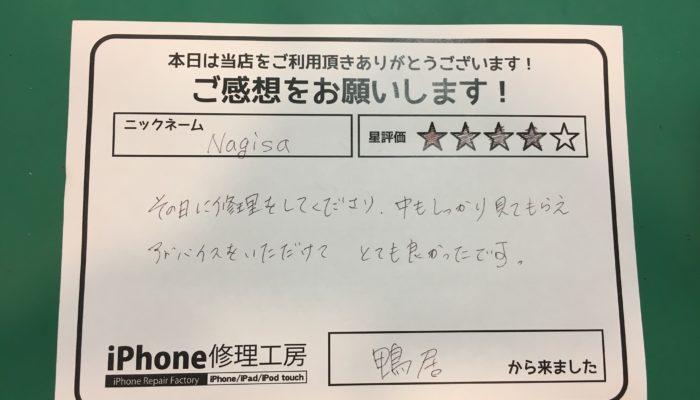 本日は当店をご利用頂きありがとうございます！
ご感想をお願いします！
ニックネーム
Nagisa
星評価 ★★★★☆
その日に修理をしてくださり、中もしっかり見てもらえ
アドバイスをいただけて とても良かったです。
iPhone修理工房
iPhone Repair Factory iPhone/iPad/iPod touch
鴨居 から来ました